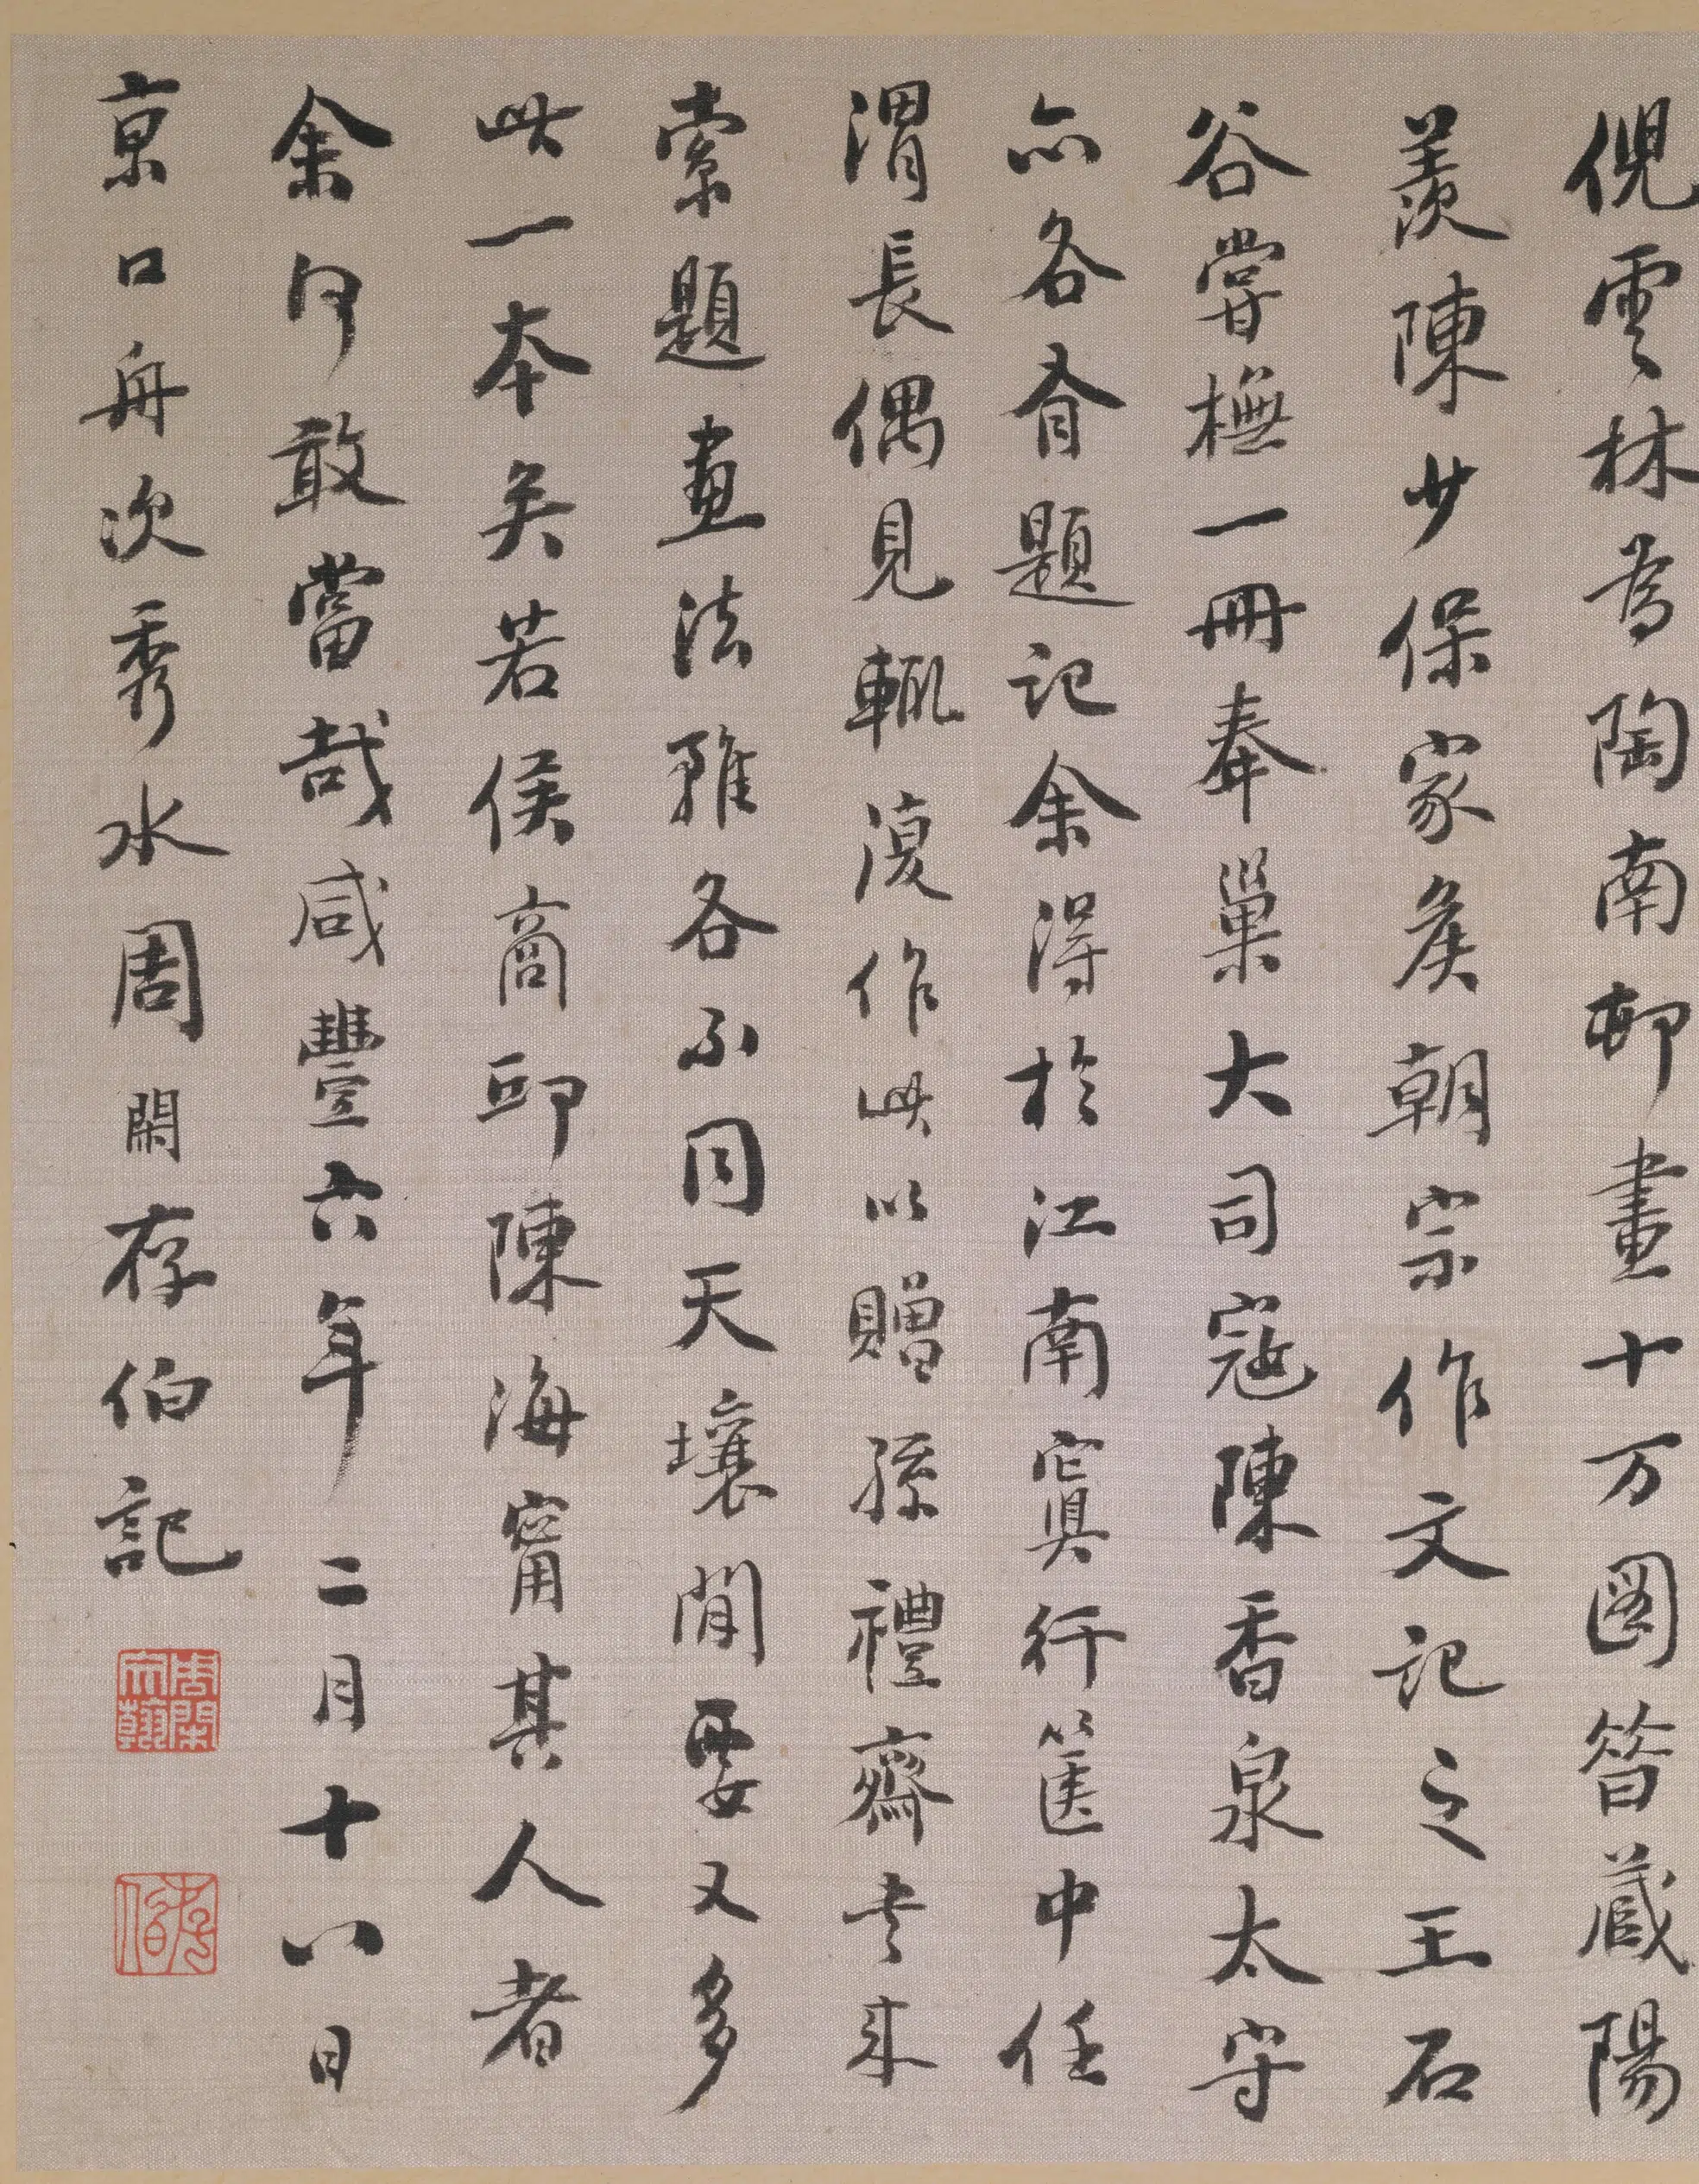 倪雲林為陶南邨畫十万圖昝蔵陽
羨陳少保家矦朝宗作文記之王石
谷嘗橅一冊奉巢大司寇陳香泉太守
亦各有題記余得於江南寘行篋中任
渭長偶見輒復作此以贈孫禮齋老来
索題畫法雖各不同天壤閒要又多
此一本矣若侯商邱陳海甯其人者
余何敢當哉咸豐六年二月十八日
京口舟次秀水周閑存伯記
周閑之翰
存伯